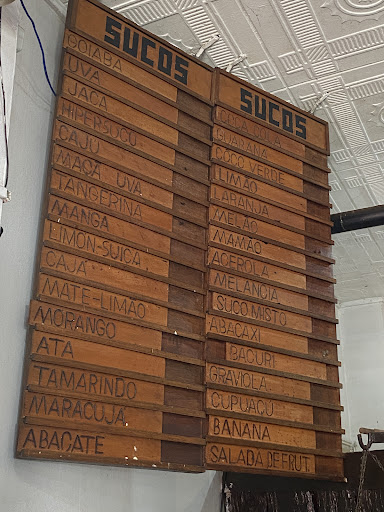 SUCOS
GOIABA
UVA
JACA
HIPERSUCU
CAJU
MACA UVA
TANGERINA
MANGA
LIMON-SUIÇA
CAJA
MATE-LIMÃO
MORANGO
ATA
TAMARINDO
MARACUJA
ABACATE
SUCOS
COCA COLA
GUARANA
COCO VERDE
LIMÃO
LARANJA
MELÃO
MAMÃO
ACEROLA
MELANCIA
SUCO MISTO
ABACAXI
BACURI
GRAVIOLA
CUPUAÇU
BANANA
SALADA DE FRUT.